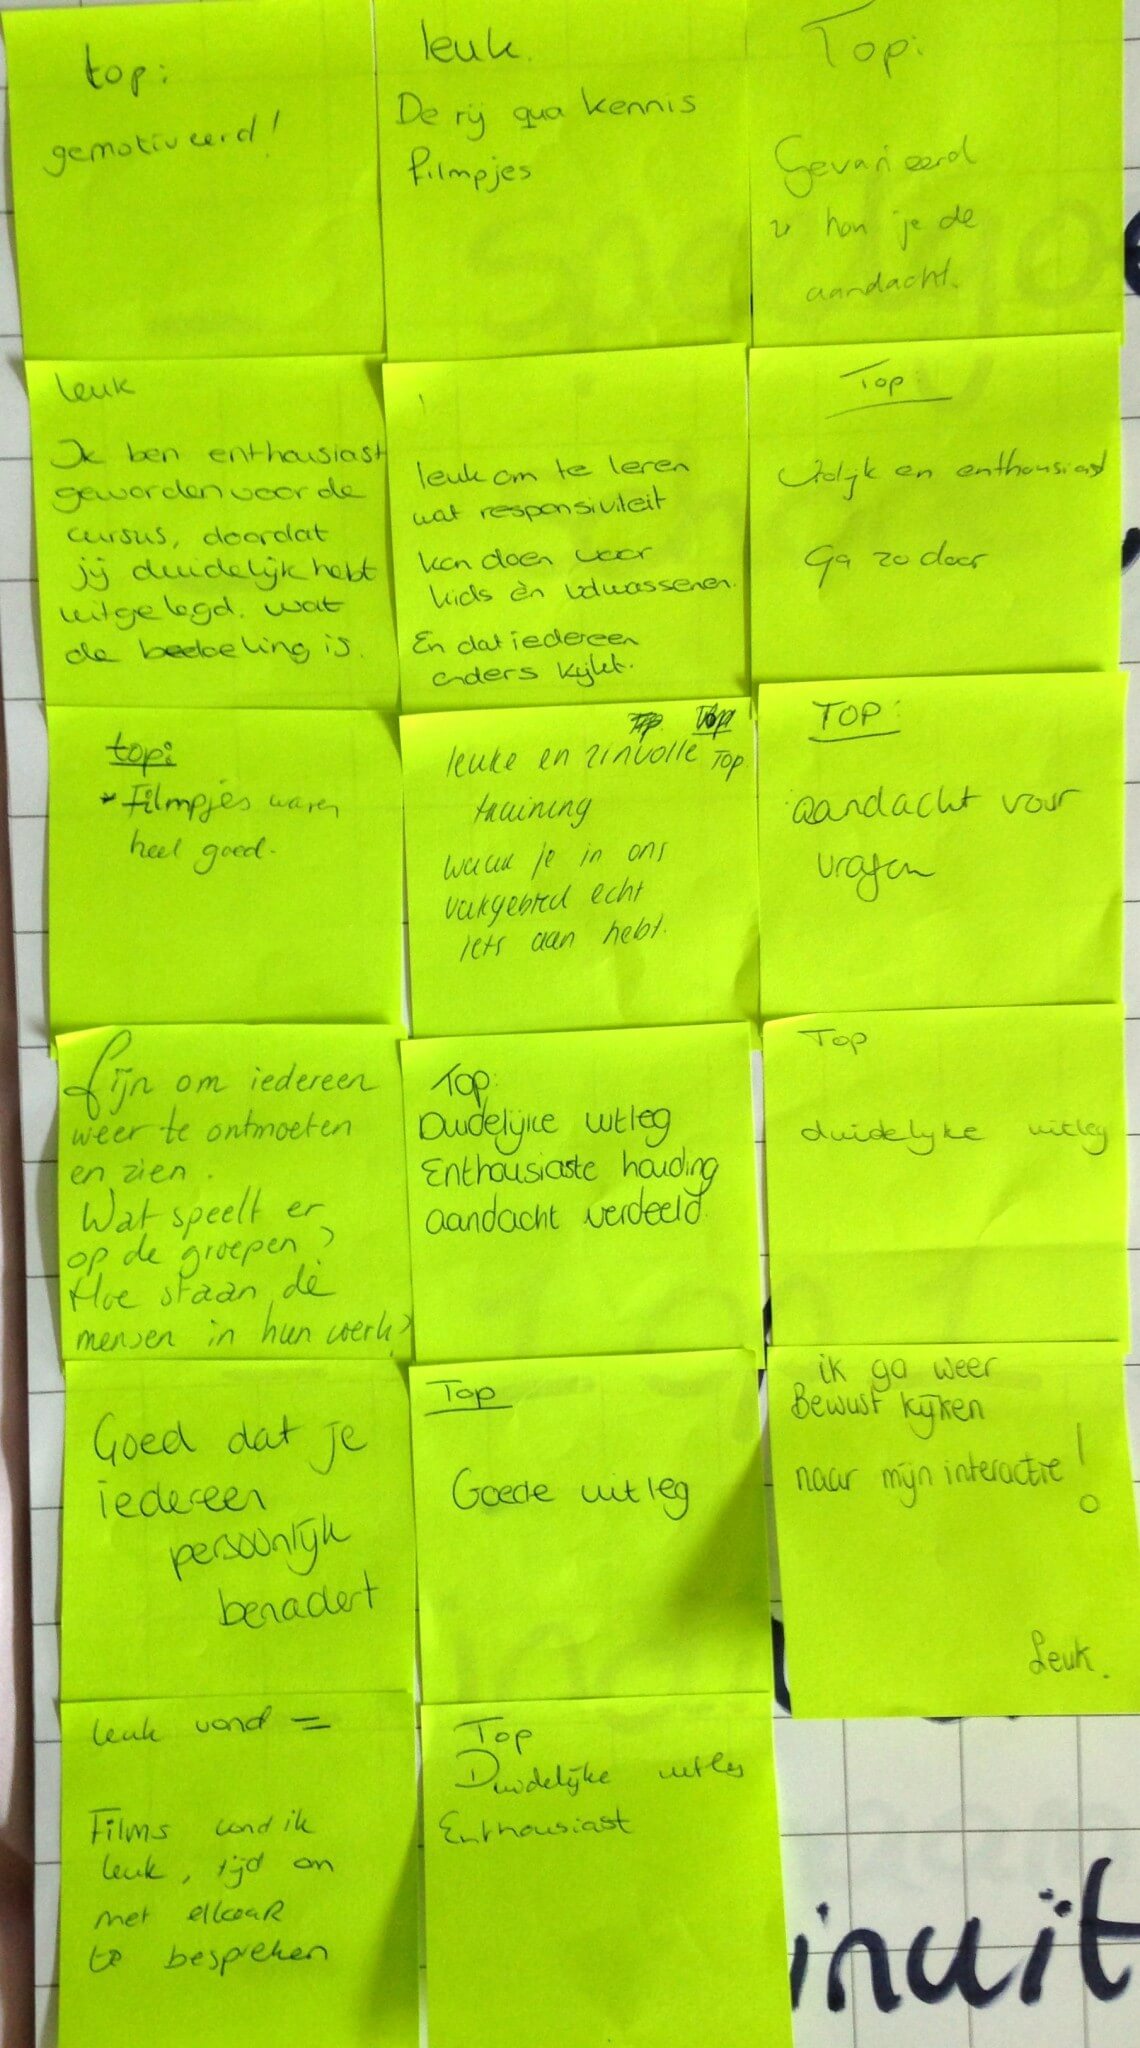 top:
gemotiveerd!
leuk.
De rij qua kennis
filmpjes
Top:
Gevarieerd
zo hou je de
aandacht.
leuk
Ik ben enthousiast
geworden voor de
cursus, doordat
jij duidelijk hebt
uitgelegd. wat
de bedoeling is.
leuk om te leren
wat responsiviteit
kan doen voor
kids èn volwassenen.
En dat iedereen
anders kijkt.
Top
en enthousiast
Ga zo door
top:
Filmpjes waren
heel goed.
Top
leuke en zinvolle
training
waar je in ons
vakgebied echt
iets aan hebt.
TOP:
aandacht voor
vragen
Fijn om iedereen
weer te ontmoeten
en zien.
Wat speelt er
op de groepen?
Hoe staan de
mensen in hun werk?
Top:
Duidelijke uitleg
Enthousiaste houding
aandacht verdeeld.
Top
duidelijke uitleg
Goed dat je
iedereen
persoonlijk
benadert
Top
Goede uitleg
ik ga weer
Bewust kijken
naar mijn interactie!
Leuk.
leuk vond =
Films vond ik
leuk, tijd om
met elkaar
te bespreken
Top
Duidelijke uitleg
Enthousiast
inuït